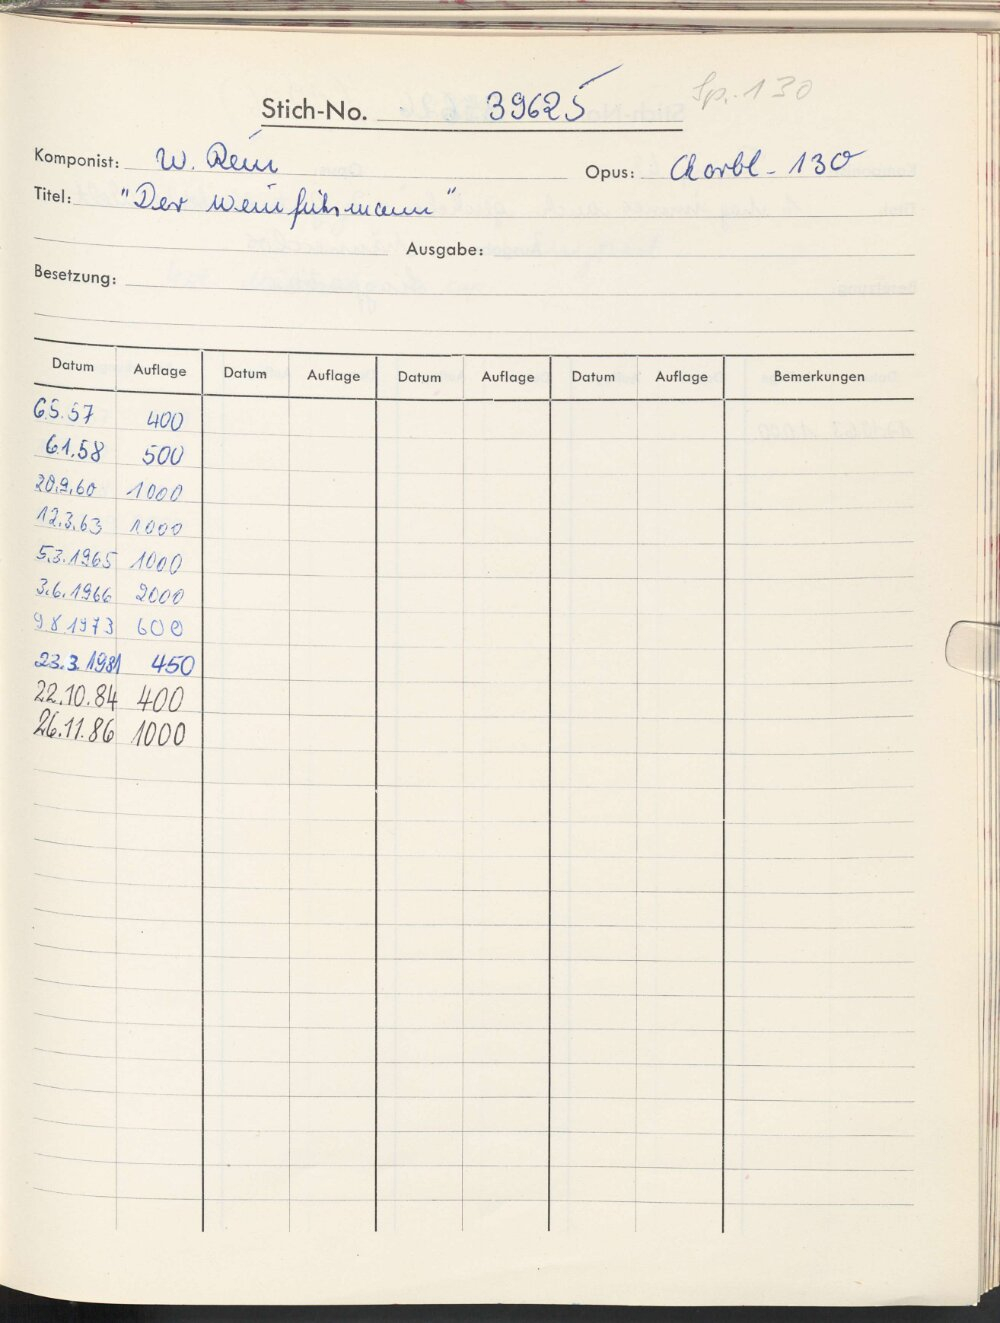 Sp. 130
Stich-No. 39625
Komponist: W. Rein Opus: Chorbl - 130
Titel: "Der Weinfuhrmann"
Ausgabe:
Besetzung:
Datum Auflage Datum Auflage Datum Auflage Datum Auflage Bemerkungen
6.5.57 400
6.1.58 500
20.9.60 1000
12.3.63 1000
5.3.1965 1000
3.6.1966 2000
9 8 1973 600
23.3.1981 450
22.10.84 400
26.11.86 1000